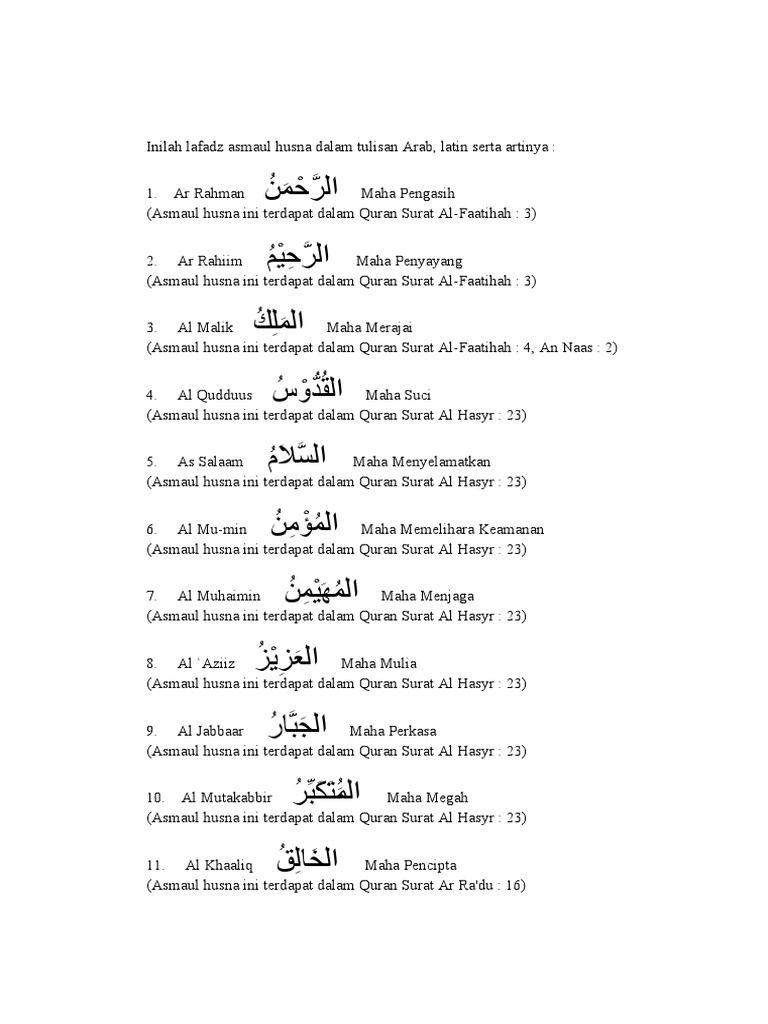 Inilah lafadz asmaul husna dalam tulisan Arab, latin serta artinya :
1. Ar Rahman الرَّحْمَنُ Maha Pengasih
(Asmaul husna ini terdapat dalam Quran Surat Al-Faatihah : 3)
2. Ar Rahiim الرَّحِيْمُ Maha Penyayang
(Asmaul husna ini terdapat dalam Quran Surat Al-Faatihah : 3)
3. Al Malik المَلِكُ Maha Merajai
(Asmaul husna ini terdapat dalam Quran Surat Al-Faatihah : 4, An Naas : 2)
4. Al Qudduus القُدُّوْسُ Maha Suci
(Asmaul husna ini terdapat dalam Quran Surat Al Hasyr : 23)
5. As Salaam السَّلاَمُ Maha Menyelamatkan
(Asmaul husna ini terdapat dalam Quran Surat Al Hasyr : 23)
6. Al Mu-min المُؤْمِنُ Maha Memelihara Keamanan
(Asmaul husna ini terdapat dalam Quran Surat Al Hasyr : 23)
7. Al Muhaimin المُهَيْمِنُ Maha Menjaga
(Asmaul husna ini terdapat dalam Quran Surat Al Hasyr : 23)
8. Al `Aziiz العَزِيْزُ Maha Mulia
(Asmaul husna ini terdapat dalam Quran Surat Al Hasyr : 23)
9. Al Jabbaar الجَبَّارُ Maha Perkasa
(Asmaul husna ini terdapat dalam Quran Surat Al Hasyr : 23)
10. Al Mutakabbir المُتَكَبِّرُ Maha Megah
(Asmaul husna ini terdapat dalam Quran Surat Al Hasyr : 23)
11. Al Khaaliq الخَالِقُ Maha Pencipta
(Asmaul husna ini terdapat dalam Quran Surat Ar Ra'du : 16)